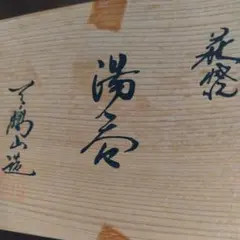 萩焼
湯呑
天鵬山造